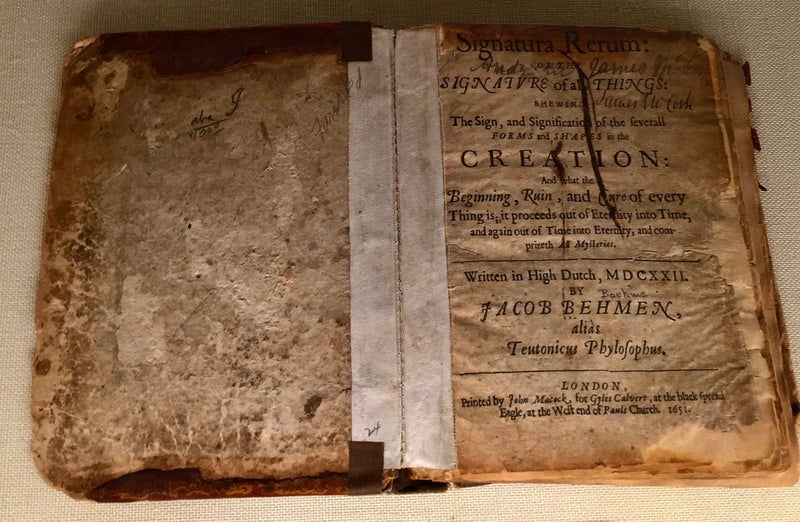 aba J
1000
Signatura Rerum:
OR THE
SIGNATVRE of all THINGS:
James
SHEWING
James McCosh
The Sign, and Signification of the ſeverall
FORMS and SHAPES in the
CREATION:
And what the
Beginning, Ruin, and Cure of every
Thing is; it proceeds out of Eternity into Time,
and again out of Time into Eternity, and com-
prizeth All Myſteries.
Written in High Dutch, MDCXXII.
BY Boehme
JACOB BEHMEN,
aliàs
Teutonicus Phyloſophus.
LONDON,
Printed by John Macock, for Gyles Calvert, at the black ſpread
Eagle, at the Weſt end of Pauls Church. 1651.